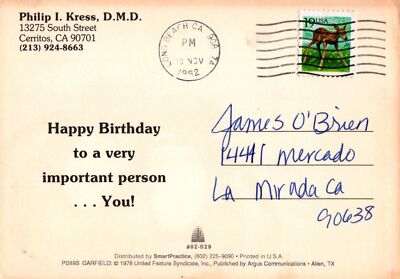 Philip I. Kress, D.M.D.
13275 South Street
Cerritos, CA 90701
(213) 924-8663
LONG BEACH CA
PM
NOV
1992
19 USA
Happy Birthday
to a very
important person
. . . You!
James O'Brien
14411 Mercado
La Mirada Ca
90638
#82-029
Distributed by SmartPractice, (602) 225-9090 • Printed in U.S.A.
P089S GARFIELD: © 1978 United Feature Syndicate, Inc., Published by Argus Communications • Allen, TX